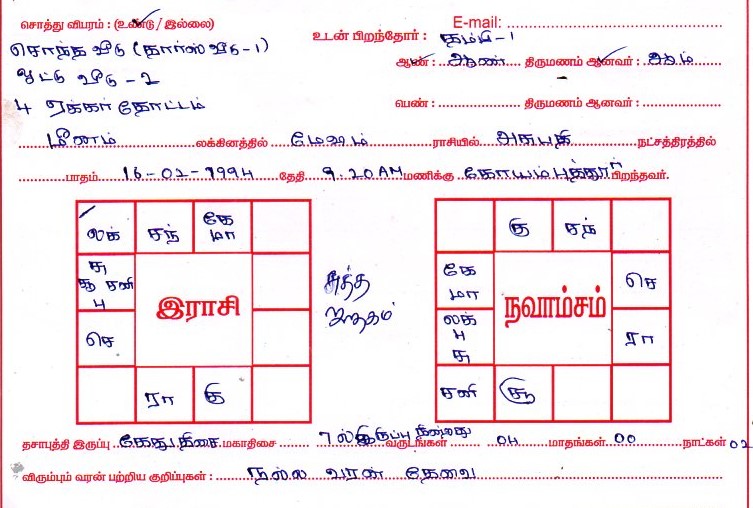 சொத்து விபரம் : (உண்டு / இல்லை)
E-mail:
சொந்த வீடு (தார்ஸ் வீடு - 1)
உடன் பிறந்தோர் : தம்பி - 1
ஓட்டு வீடு - 2
ஆண் : ஆண் திருமணம் ஆனவர் : ஆம்
4 ஏக்கர் தோட்டம்
பெண் : திருமணம் ஆனவர் :
மீனம் லக்கினத்தில் மேஷம் ராசியில் அசுபதி நட்சத்திரத்தில்
பாதம் 16-02-1994 தேதி 9.20 AM மணிக்கு கோயம்புத்தூர் பிறந்தவர்.
லக் சந் கே மா
சு சூ சனி பு
செ
ரா கு
இராசி
சுத்த ஜாதகம்
கு சந்
கே மா செ
லக் பு சு ரா
சனி சூ
நவாம்சம்
தசாபுத்தி இருப்பு கேது திசை மகாதிசை 7ல் இருப்பு நின்றது வருடங்கள் 04 மாதங்கள் 00 நாட்கள் 02
விரும்பும் வரன் பற்றிய குறிப்புகள் : நல்ல வரன் தேவை